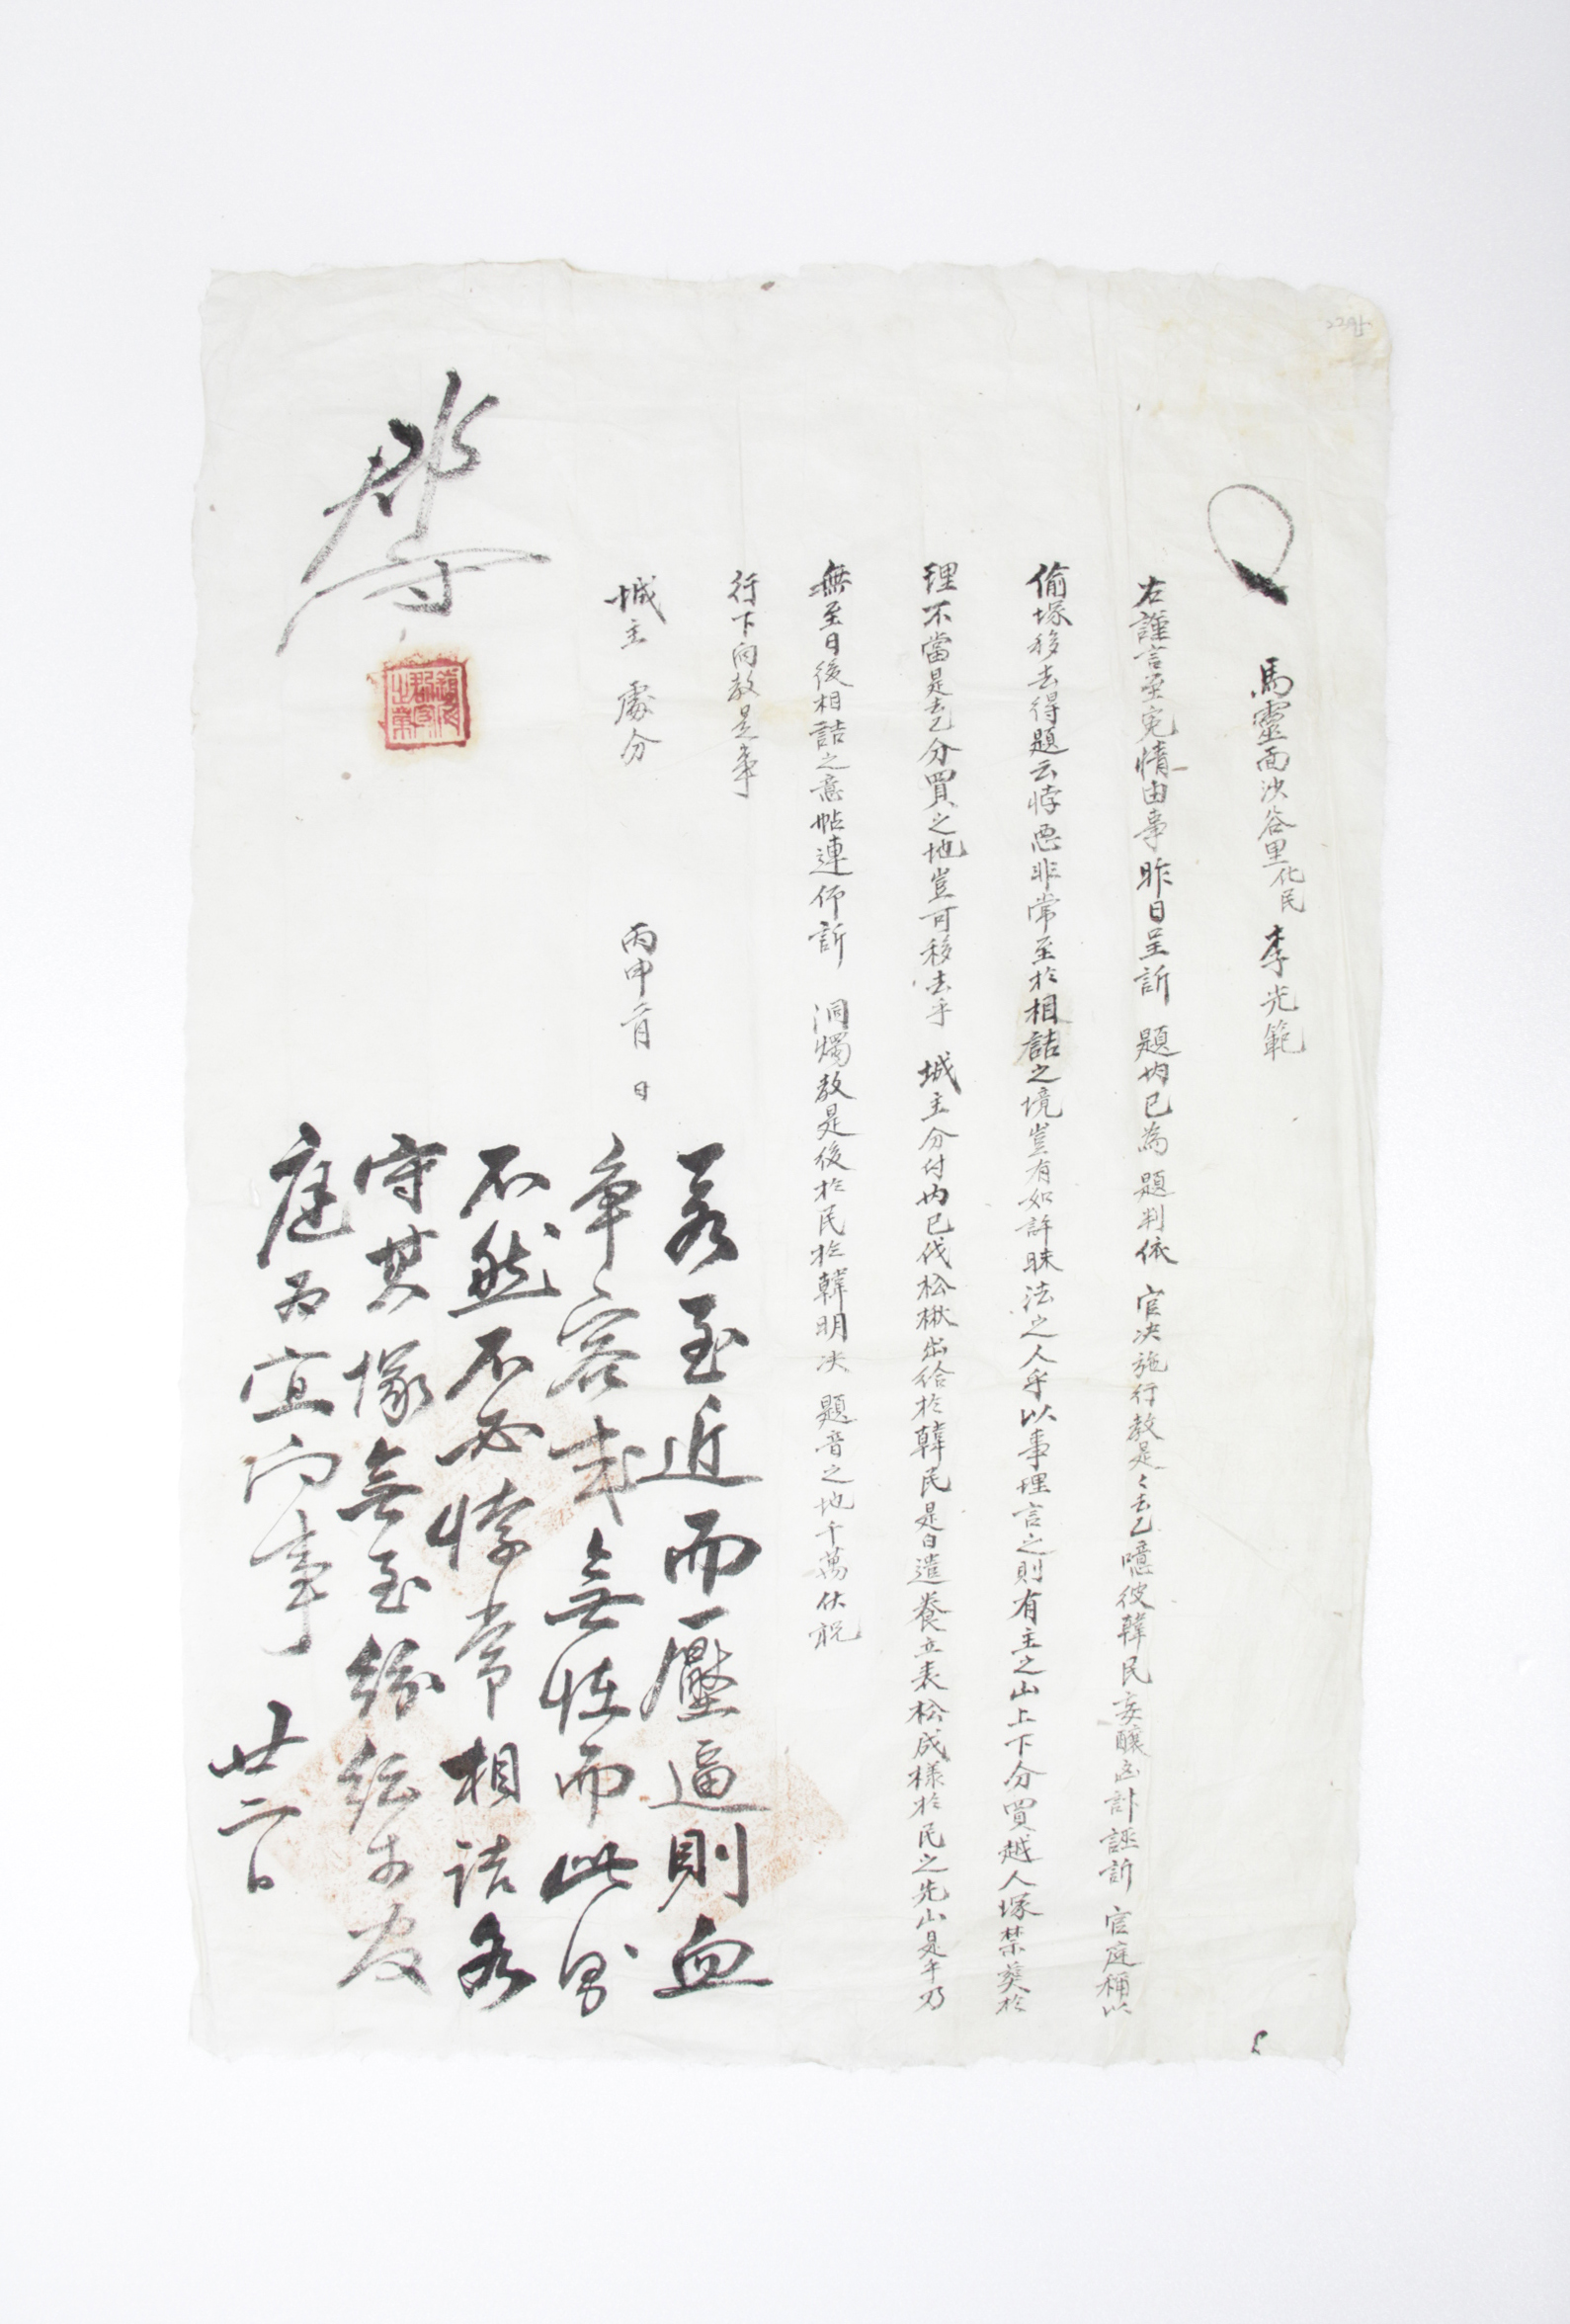 馬靈面沙谷里化民李光範
右謹言至寃情由事昨日呈訴 題內已爲 題判依 官決施行敎是是去乙噫彼韓民妄釀凶計誣訴 官庭稱以
偷塚移去得題云悖惡非常至於相詰之境豈有如許昧法之人乎以事理言之則有主之山上下分買越人塚禁葬於
理不當是去乙分買之地豈可移去乎 城主分付內已伐松楸出給於韓民是日遣養立表松成樣於民之先山是乎乃
無至日後相詰之意帖連仰訴 洞燭敎是後於民於韓明決 題音之地千萬伏祝
行下向敎是事
城主 處分 丙申二月 日
若至近而壓逼則血
爭容或無怪而此則
不然不必悖常相詰各
守其塚無至紛紜於公
庭爲宜向事 廿二日
郡守